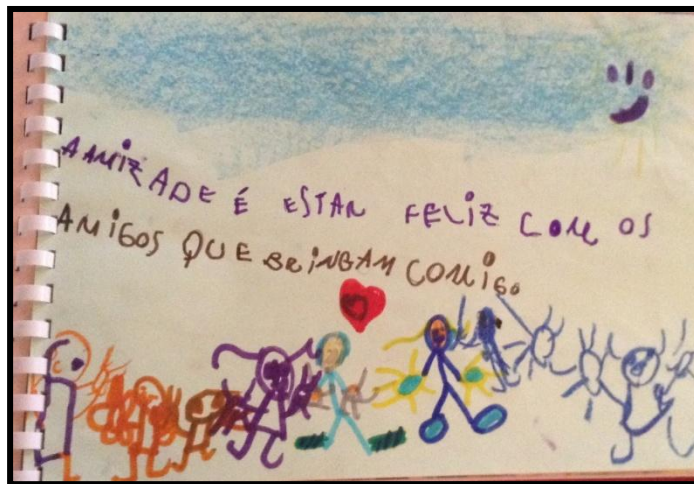 AMIZADE É ESTAR FELIZ COM OS
AMIGOS QUE BRINGAM COMIGO